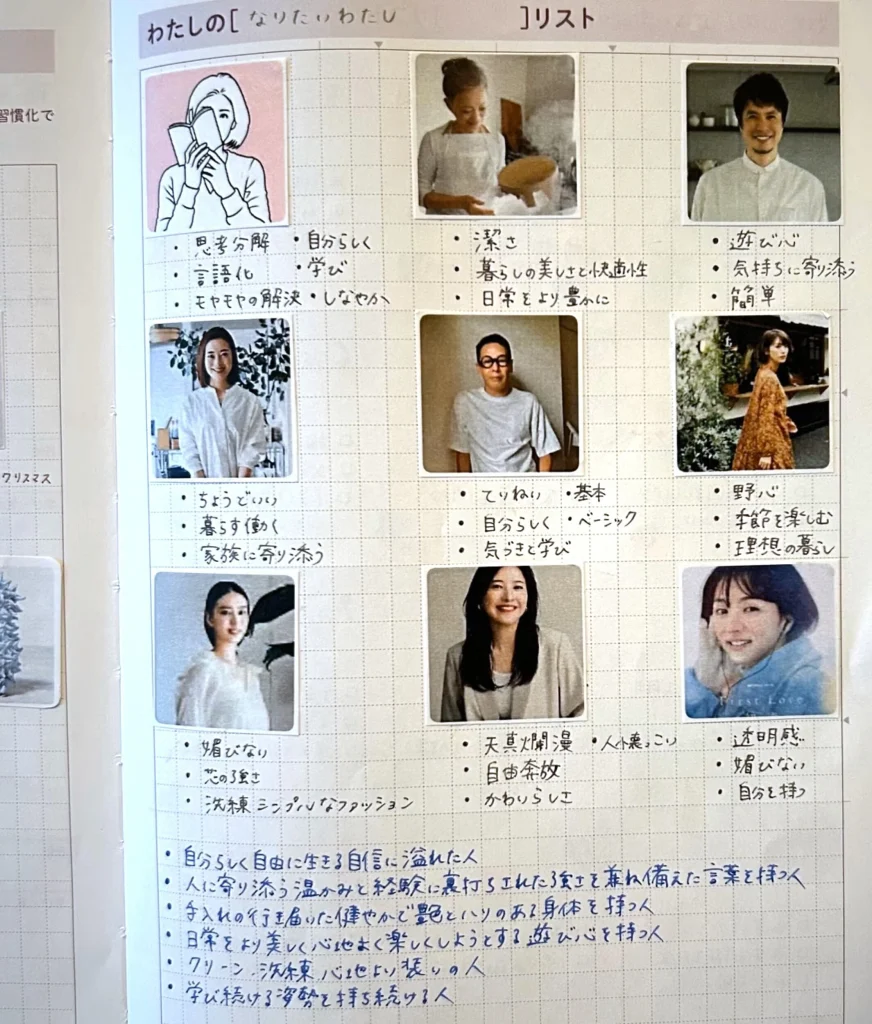 わたしの[ なりたいわたし ]リスト
習慣化で
・思考分解 ・自分らしく
・言語化 ・学び
・モヤモヤの解決 ・しなやか
・潔さ
・暮らしの美しさと快適性
・日常をより豊かに
・遊び心
・気持ちに寄り添う
・簡単
クリスマス
・ちょうどいい
・暮らす働く
・家族に寄り添う
・ていねい ・基本
・自分らしく ・ベーシック
・気づきと学び
・野心
・季節を楽しむ
・理想の暮らし
First Love
・媚びない
・芯の強さ
・洗練 シンプルなファッション
・天真爛漫 ・人懐っこい
・自由奔放
・かわいらしさ
・透明感
・媚びない
・自分を持つ
・自分らしく自由に生きる自信に溢れた人
・人に寄り添う温かみと経験に裏打ちされた強さを兼ね備えた言葉を持つ人
・手入れの行き届いた健やかで艶とハリのある身体を持つ人
・日常をより美しく心地よく楽しくしようとする遊び心を持つ人
・クリーン、洗練、心地よい装いの人
・学び続ける姿勢を持ち続ける人